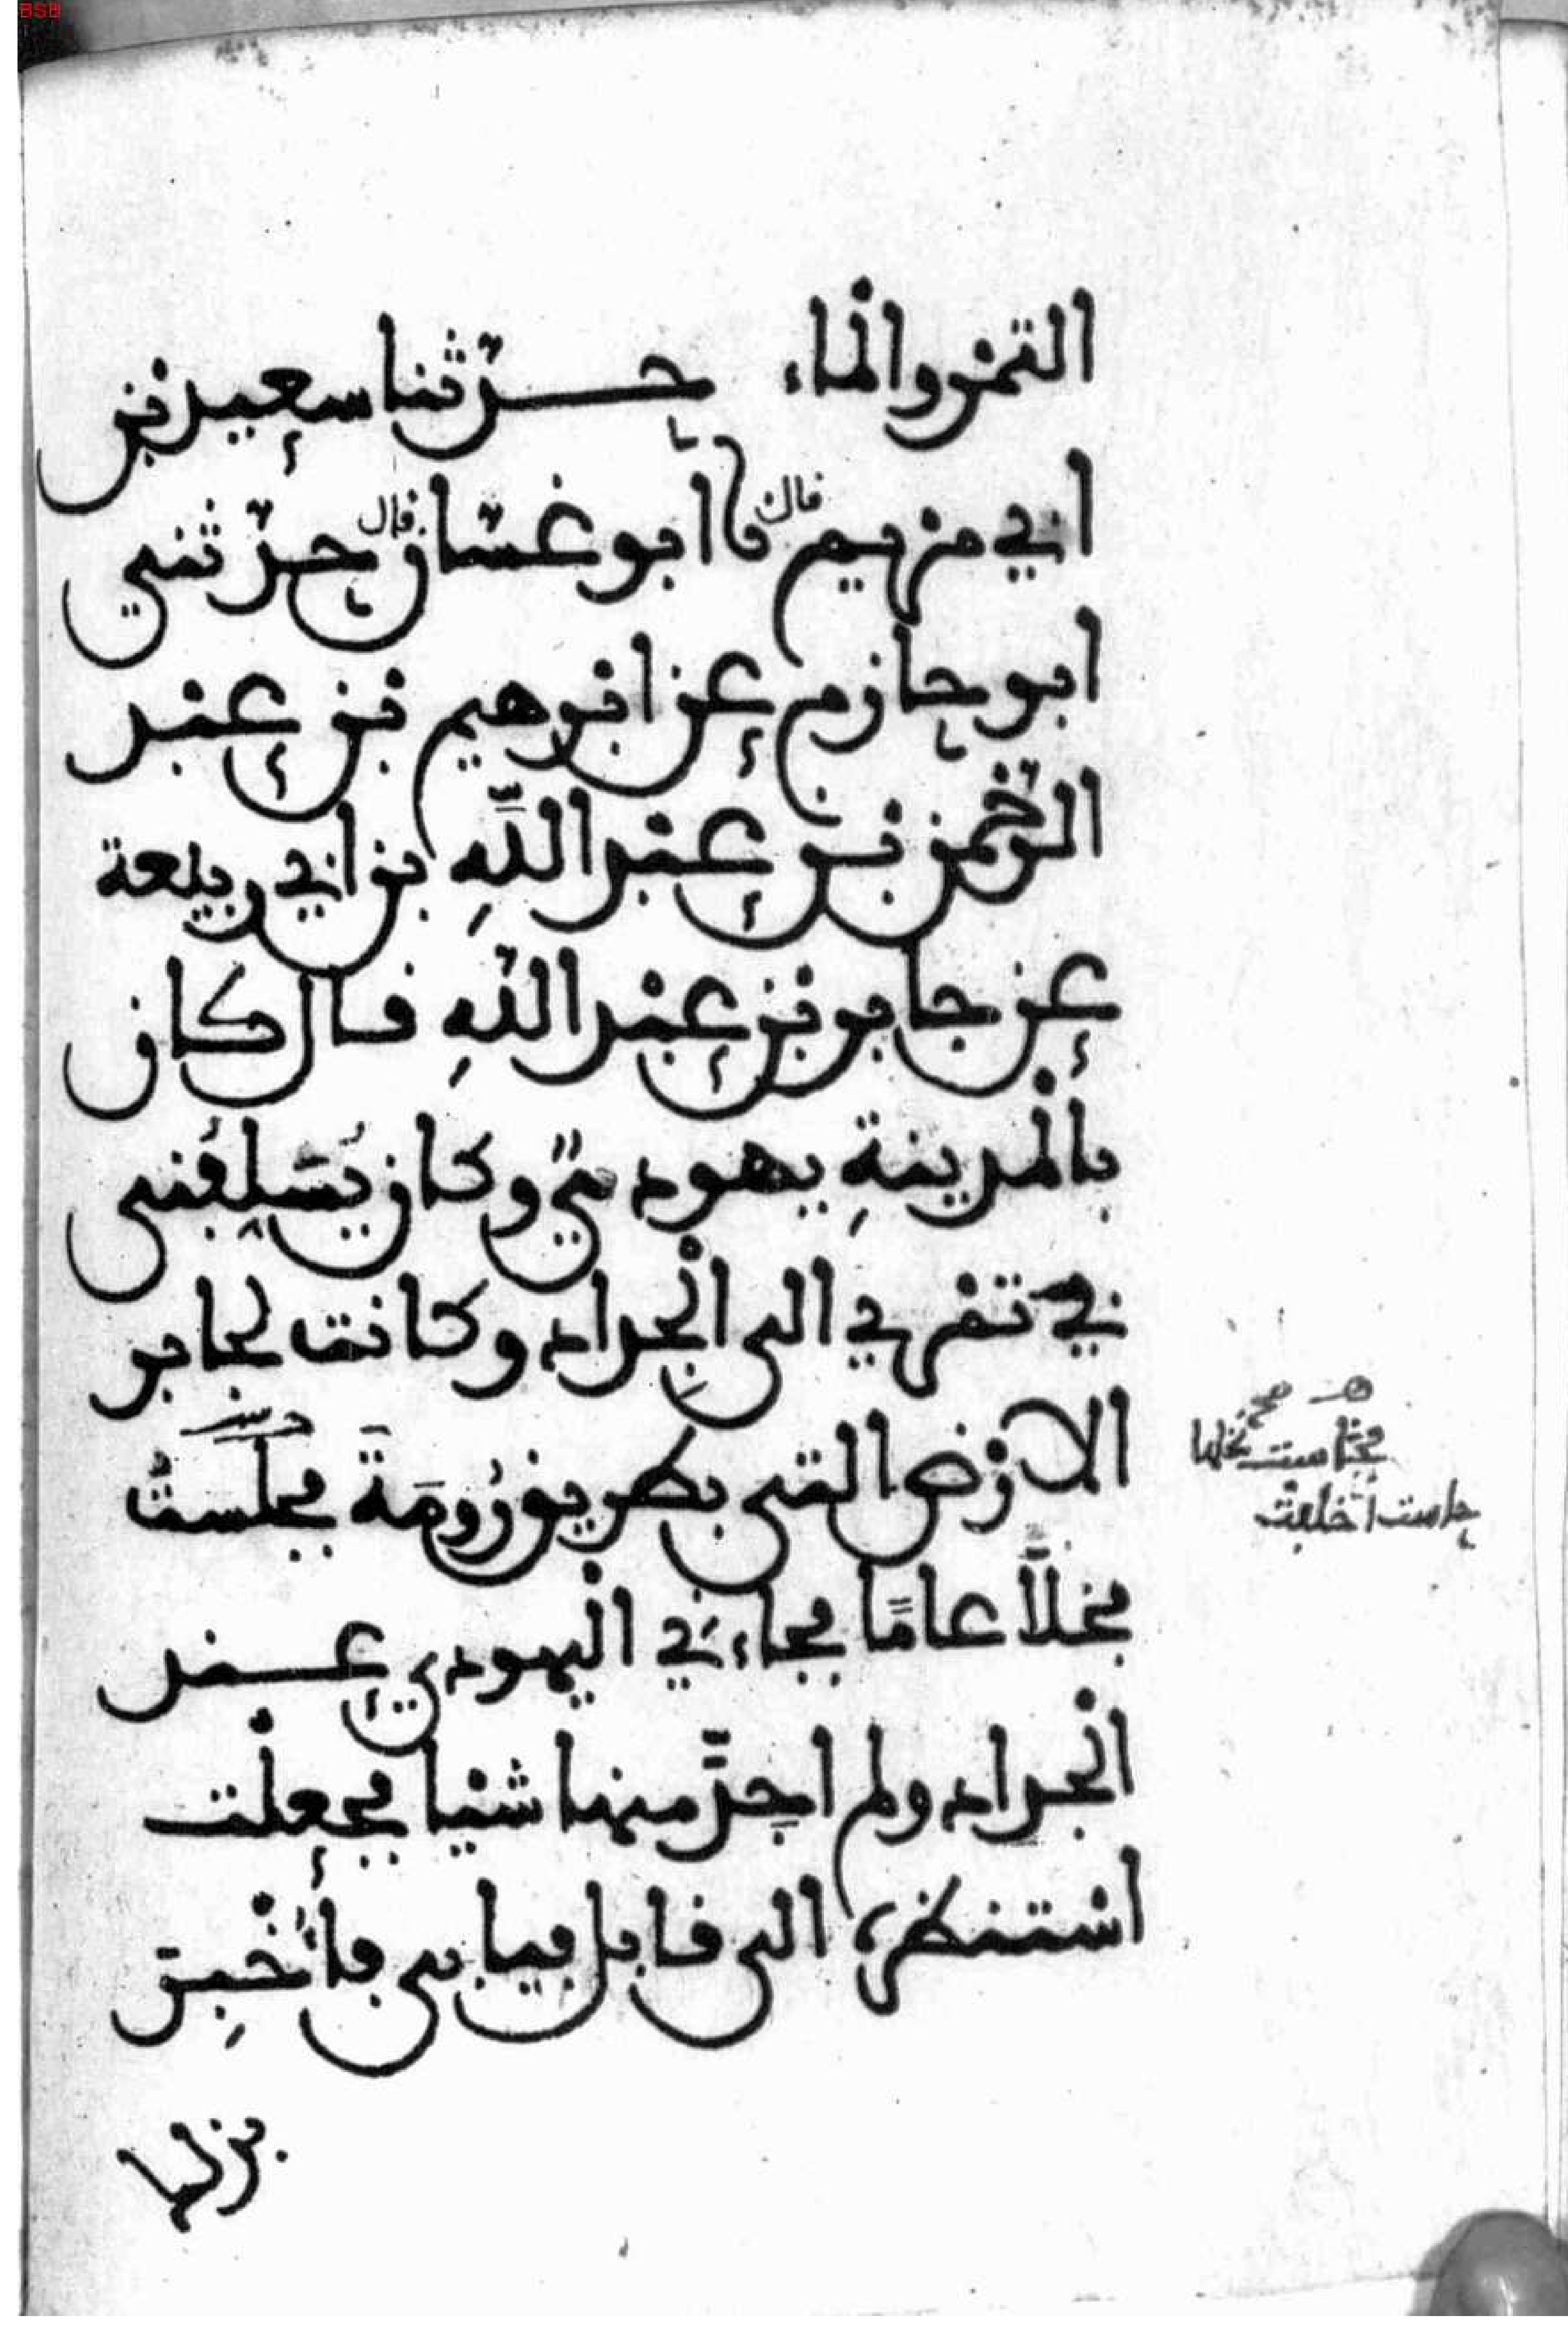 التمْر والْماء حدّثنا سعيد بْن
ابي مريم قال نا ابو غسّان قال حدّثني
ابو حازم عن ابْرهيم بْن عبْد
الرّحْمن بْن عبْد اللَّهِ بن ابي ربيعة
عن جابر بْن عبْد اللّهِ قال كان
بالْمدينةِ يهوديٌّ وكان يُسَلِفُني
في تمْري الى الْجِداد وكانت لجابر
الارْض التي بطريق رُومَةَ فجلَسَتْ
فخلَّا عامًا فجاءَني اليْهودي عند
الْجداد ولم اجِدَّ منها شيْيا فجعلْت
اسْتنظره الى قابل فيابى فأُخْبِرَ
بذلك
صح
فخاست نخلها